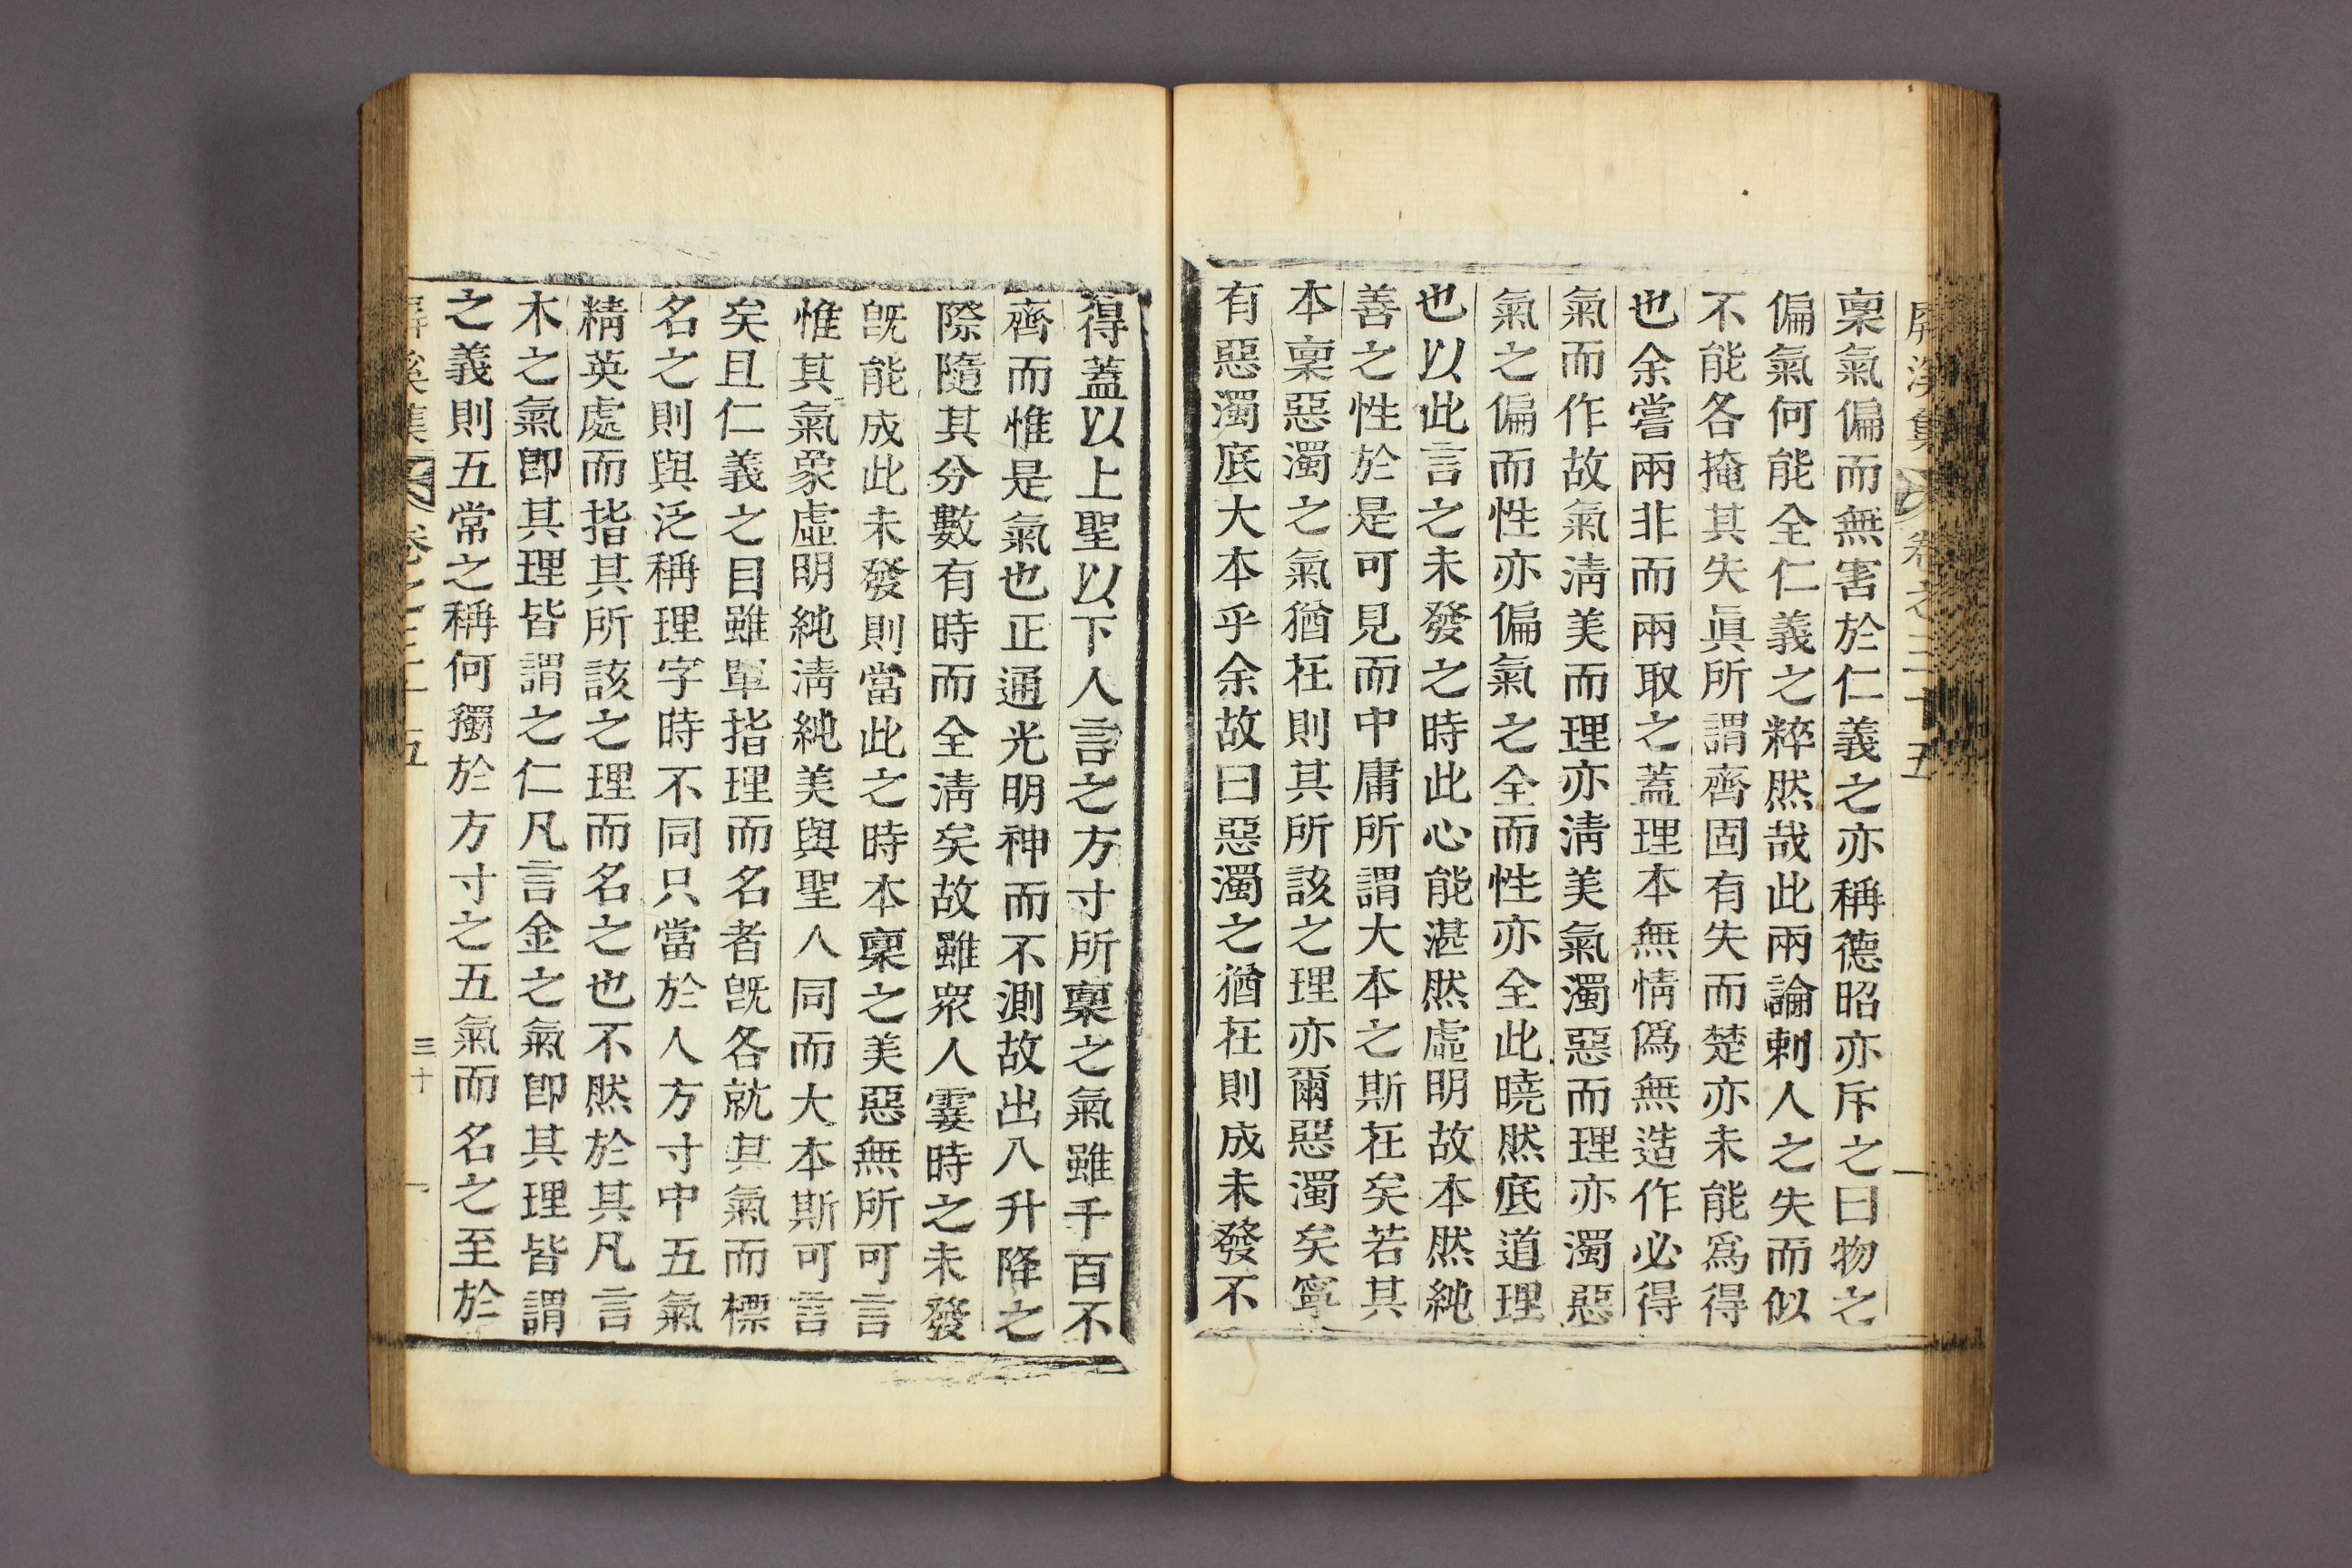 屛溪集 卷之三十五
稟氣偏而無害於仁義之亦稱德昭亦斥之曰物之
偏氣何能全仁義之粹然哉此兩論剌人之失而似
不能各掩其失眞所謂齊固有失而楚亦未能爲得
也余嘗兩非而兩取之蓋理本無情僞無造作必得
氣而作故氣淸美而理亦淸美氣濁惡而理亦濁惡
氣之偏而性亦偏氣之全而性亦全此曉然底道理
也以此言之未發之時此心能湛然虛明故本然純
善之性於是可見而中庸所謂大本之斯在矣若其
本稟惡濁之氣猶在則其所該之理亦爾惡濁矣寧
有惡濁底大本乎余故曰惡濁之猶在則成未發不
得蓋以上聖以下人言之方寸所稟之氣雖千百不
齊而惟是氣也正通光明神而不測故出入升降之
際隨其分數有時而全淸矣故雖衆人霎時之未發
旣能成此未發則當此之時本稟之美惡無所可言
惟其氣象虛明純淸純美與聖人同而大本斯可言
矣且仁義之目雖單指理而名者旣各就其氣而標
名之則與泛稱理字時不同只當於人方寸中五氣
精英處而指其所該之理而名之也不然於其凡言
木之氣卽其理皆謂之仁凡言金之氣卽其理皆謂
之義則五常之稱何獨於方寸之五氣而名之至於
屛溪集 卷之三十五 三十